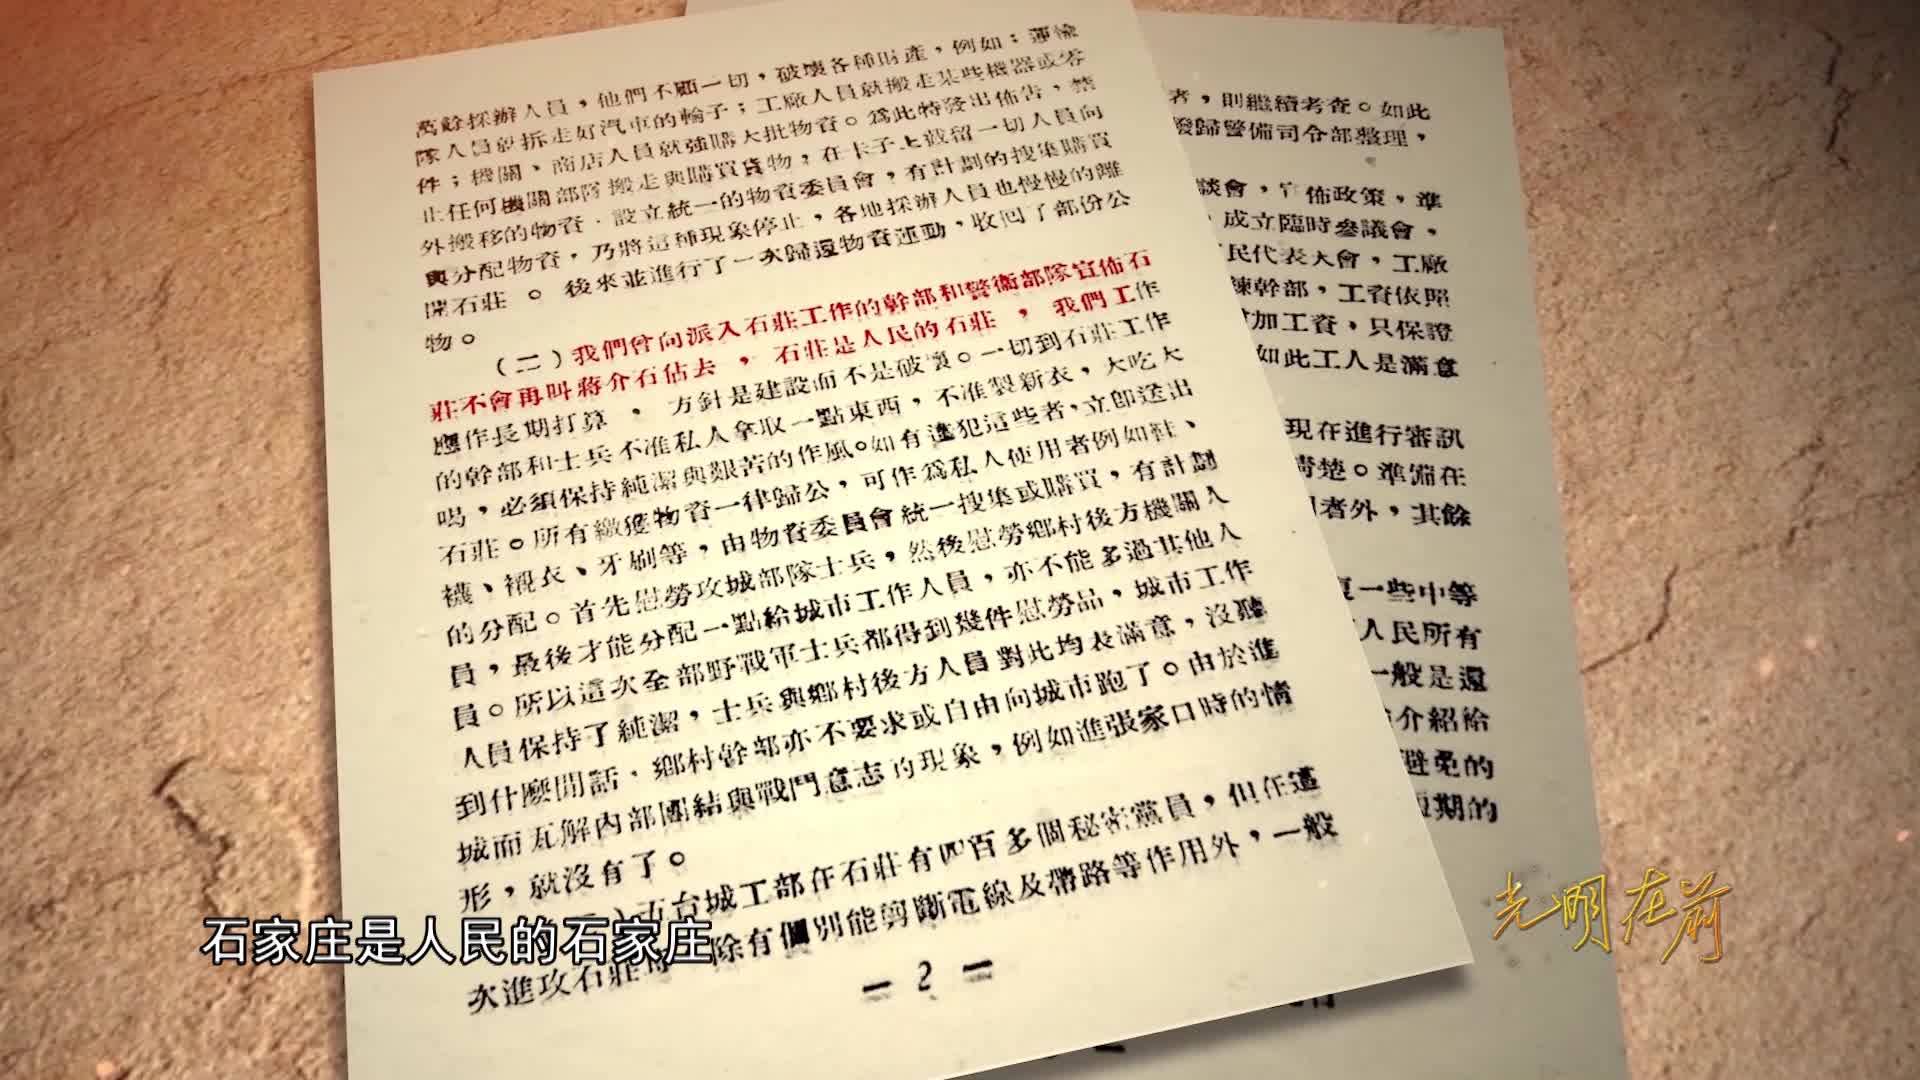 萬餘採辦人員，他們不顧一切，破壞各種財產，例如：運輸
隊人員就拆走好汽車的輪子；工廠人員就搬走某些機器或零
件；機關、商店人員就強購大批物資。爲此特發出佈告，禁
止任何機關部隊搬走與購買貨物，在卡子上截留一切人員向
外搬移的物資，設立統一的物資委員會，有計劃的搜集購買
與分配物資，乃將這種現象停止，各地採辦人員也慢慢的離
開石莊。後來並進行了一次歸還物資運動，收回了部份公
物。
（二）我們曾向派入石莊工作的幹部和警衛部隊宣佈石
莊不會再叫蔣介石佔去，石莊是人民的石莊，我們工作
應作長期打算，方針是建設而不是破壞。一切到石莊工作
的幹部和士兵不准私人拿取一點東西，不准製新衣，大吃大
喝，必須保持純潔與艱苦的作風。如有違犯這些者，立即送出
石莊。所有繳獲物資一律歸公，可作爲私人使用者例如鞋、
襪、襯衣、牙刷等，由物資委員會統一搜集或購買，有計劃
的分配。首先慰勞攻城部隊士兵，然後慰勞鄉村後方機關人
員，最後才能分配一點給城市工作人員，亦不能多過其他人
員。所以這次全部野戰軍士兵都得到幾件慰勞品，城市工作
人員保持了純潔，士兵與鄉村後方人員對此均表滿意，沒聽
到什麼閒話，鄉村幹部亦不要求或自由向城市跑了。由於進
城而瓦解內部團結與戰鬥意志的現象，例如進張家口時的情
形，就沒有了。
城工部在石莊有四百多個秘密黨員，但在這
次進攻石莊 除有個別能剪斷電線及帶路等作用外，一般
— 2 —
者，則繼續考查。如此
歸警備司令部整理，
談會，宣佈政策，準
成立臨時參議會，
民代表大會，工廠
幹部，工資依照
加工資，只保證
如此工人是滿意
現在進行審訊
清楚。準備在
者外，其餘
一些中等
人民所有
一般是還
介紹給
避免的
期的
石家庄是人民的石家庄
光明在前